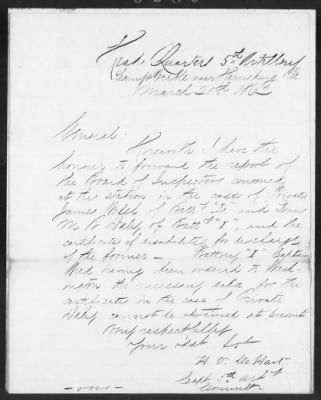 Head Quarters 5th Artillery
Camp near Harrisburg Pa
March 20th 1862
General
I have the
honour to forward the report of
the Board of Inspectors convened
at this station in the case of Private
James of Batty "I" and
M. V. Daly of Batty "I", and the
certificate of disability for discharge
of the former — Battery "I" Captain
Weed having been ordered to Wash-
ington the necessary data for the
certificate in the case of Private
Daly, cannot be obtained at present
Very respectfully
Your Obdt Svt
H. V. DeHart
Capt. 5th Arty